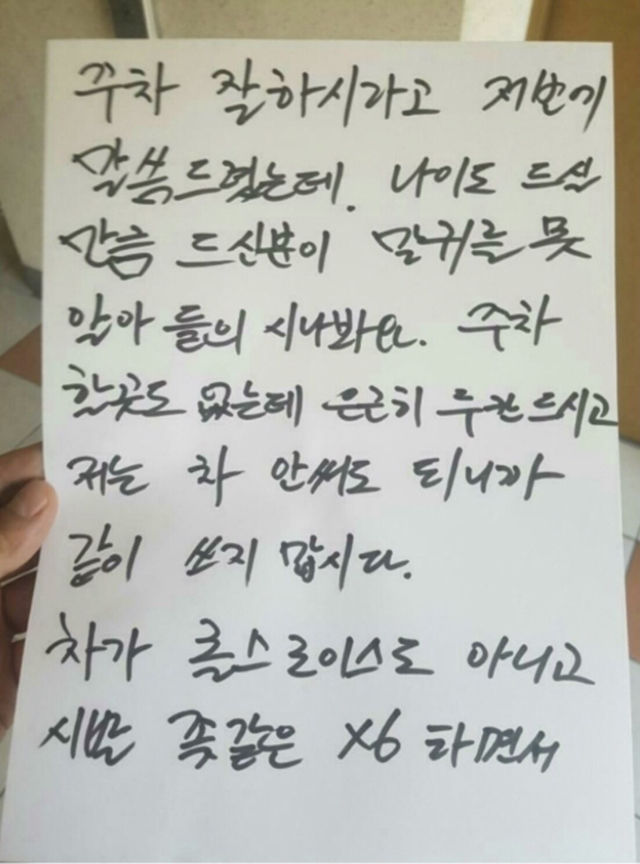 주차 잘하시라고 저번에
말씀드렸는데. 나이도 드신
만큼 드신분이 말귀를 못
알아 들의 시나봐요. 주차
할곳도 없는데 은근히 두칸드시고
저는 차 안써도 되니까
같이 쓰지 맙시다.
차가 롤스로이스도 아니고
시발 좆같은 X6 타면서